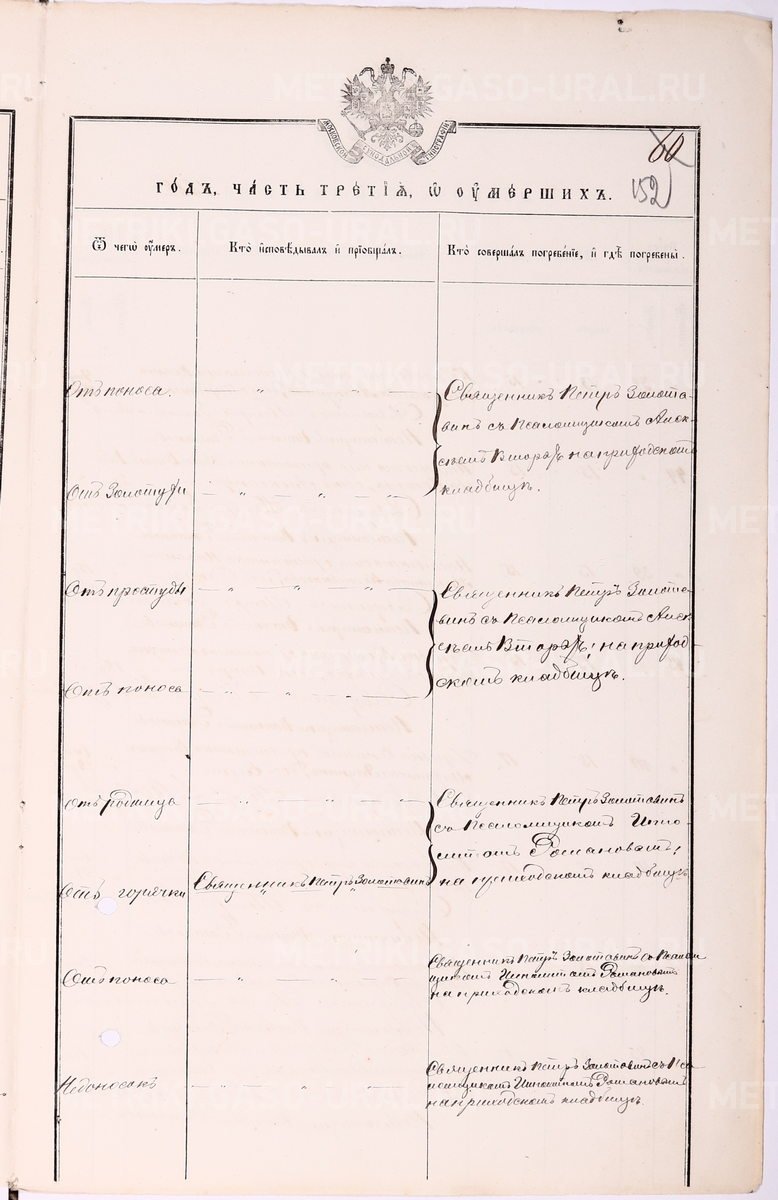 METRIKI.GASO-URAL.RU
МОСКОВСКОЙ СѴНОДАЛЬНОЙ ТИПОГРАФІИ
60
152
го́дъ, ча́сть тре́тїѧ, ѡ҆ ᲂу҆ме́ршихъ.
Ѿ чегѡ̀ ᲂу҆́меръ.
Кто̀ и҆сповѣ́дывалъ и҆ прїѡбща́лъ.
Кто̀ соверша́лъ погребе́нїе, и҆ гдѣ̀ погребены̀.
Отъ поноса.
Священникъ Петръ Золота-
винъ съ Псаломщикомъ Алек-
сѣемъ на приходскомъ
кладбищѣ.
Отъ Золотухи
Отъ простуды
Священникъ Петръ Золота-
винъ съ Псаломщикомъ Алек-
сѣемъ на приход-
скомъ кладбищѣ.
Отъ поноса
Отъ родимца
Священникъ Петръ Золотавинъ
съ Псаломщикомъ Иппо-
литомъ Романовымъ,
на приходскомъ кладбищѣ
Отъ горячки
Священникъ Петръ Золотавинъ
Отъ поноса
Священникъ Петръ Золотавинъ съ Псалом
щикомъ Ипполитомъ Романовымъ
на приходскомъ кладбищѣ.
Недоносокъ
Священникъ Петръ Золотавинъ съ Пса
ломщикомъ Ипполитомъ Романовымъ
на приходскомъ кладбищѣ.